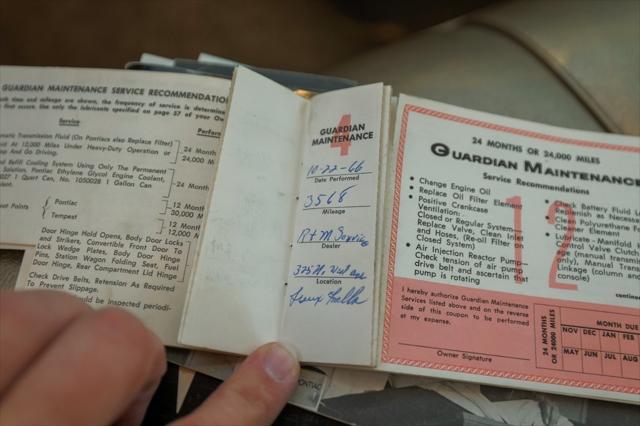 GUARDIAN MAINTENANCE SERVICE RECOMMENDATIO
time and mileage are shown, the frequency of service is determine
first occurs. Use only the lubricants specified on page 57 of your Ow
Service
Perform
matic Transmission Fluid (On Pontiacs also Replace Filter)
id At 12,000 Miles Under Heavy-Duty Operation or
op And Go Driving.
24 Month
24,000 M
Refill Cooling System Using Only The Permanent
Solution. Pontiac Ethylene Glycol Engine Coolant,
1 Quart Can, No. 1050028 1 Gallon Can
24 Month
Points
Pontiac
Tempest
12 Month
30,000 M
12 Month
12,000
Door Hinge Hold Opens, Body Door Locks
and Strikers, Convertible Front Door To
Lock Wedge Plates, Body Door Hinge
Pins, Station Wagon Folding Seat, Fuel
Door Hinge, Rear Compartment Lid Hinge
Check Drive Belts, Retension As Required
To Prevent Slippage.
should be inspected periodi-
4
GUARDIAN
MAINTENANCE
10-22-66
Date Performed
3568
Mileage
R+M Service
Dealer
325 N.
Location
Sioux Falls
PONTIAC
24 MONTHS OR 24,000 MILES
GUARDIAN MAINTENANC
Service Recommendations
12
• Change Engine Oil
• Replace Oil Filter Element
• Positive Crankcase
Ventilation:
Closed or Regular System—
Replace Valve, Clean Inlet
and Hoses, (Re-oil Filter on
Closed System)
• Air Injection Reactor Pump—
Check tension of air pump
drive belt and ascertain that
pump is rotating
Battery Fluid
Replenish as Necess
• Clean Polyurethane
Cleaner Element
• Lubricate - Manifold
Control Valve
age (manual
only), Manual Trans
Linkage (column an
console)
continu
I hereby authorize Guardian Maintenance
Services listed above and on the reverse
side of this coupon to be performed
at my expense.
Owner Signature
24 MONTHS
OR 24000 MILES
MONTH DUE
NOV DEC JAN FEB
MAY JUN JUL AUG